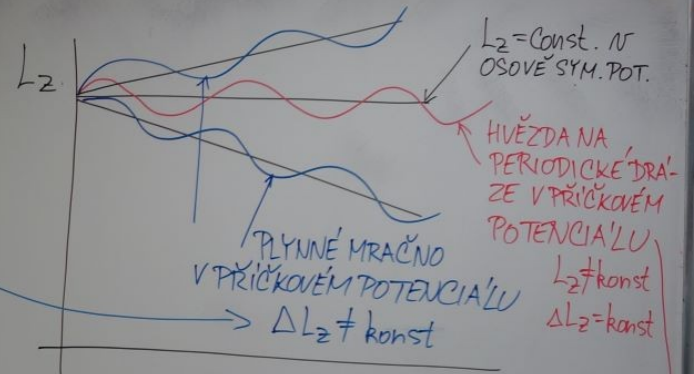 Lz
Lz = Const. V
OSOVĚ SYM. POT.
HVĚZDA NA
PERIODICKÉ DRÁ-
ZE V PŘÍČKOVÉM
POTENCIÁLU
Lz ≠ konst
ΔLz = konst
PLYNNÉ MRAČNO
V PŘÍČKOVÉM POTENCIÁLU
ΔLz ≠ konst